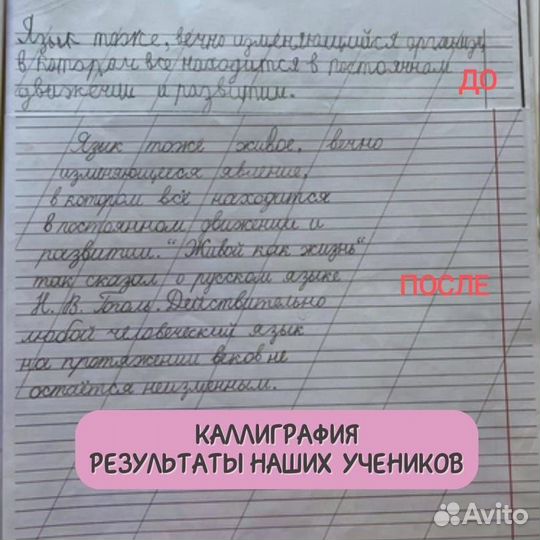 Язык тоже, вечно изменяющийся организм
в котором все находится в постоянном
движении и развитии.
ДО
Язык тоже живое, вечно
изменяющееся явление,
в котором всё находится
в постоянном движении и
развитии. "Живой как жизнь"
так сказал о русском языке
Н. В. Гоголь. Действительно
любой человеческий язык
на протяжении веков не
остаётся неизменным.
ПОСЛЕ
КАЛЛИГРАФИЯ
РЕЗУЛЬТАТЫ НАШИХ УЧЕНИКОВ
Avito